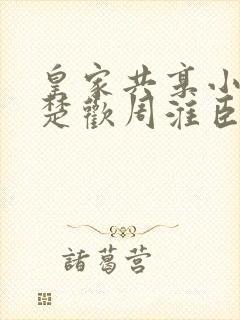 皇家共享小
楚歡周淮臣
諸葛营